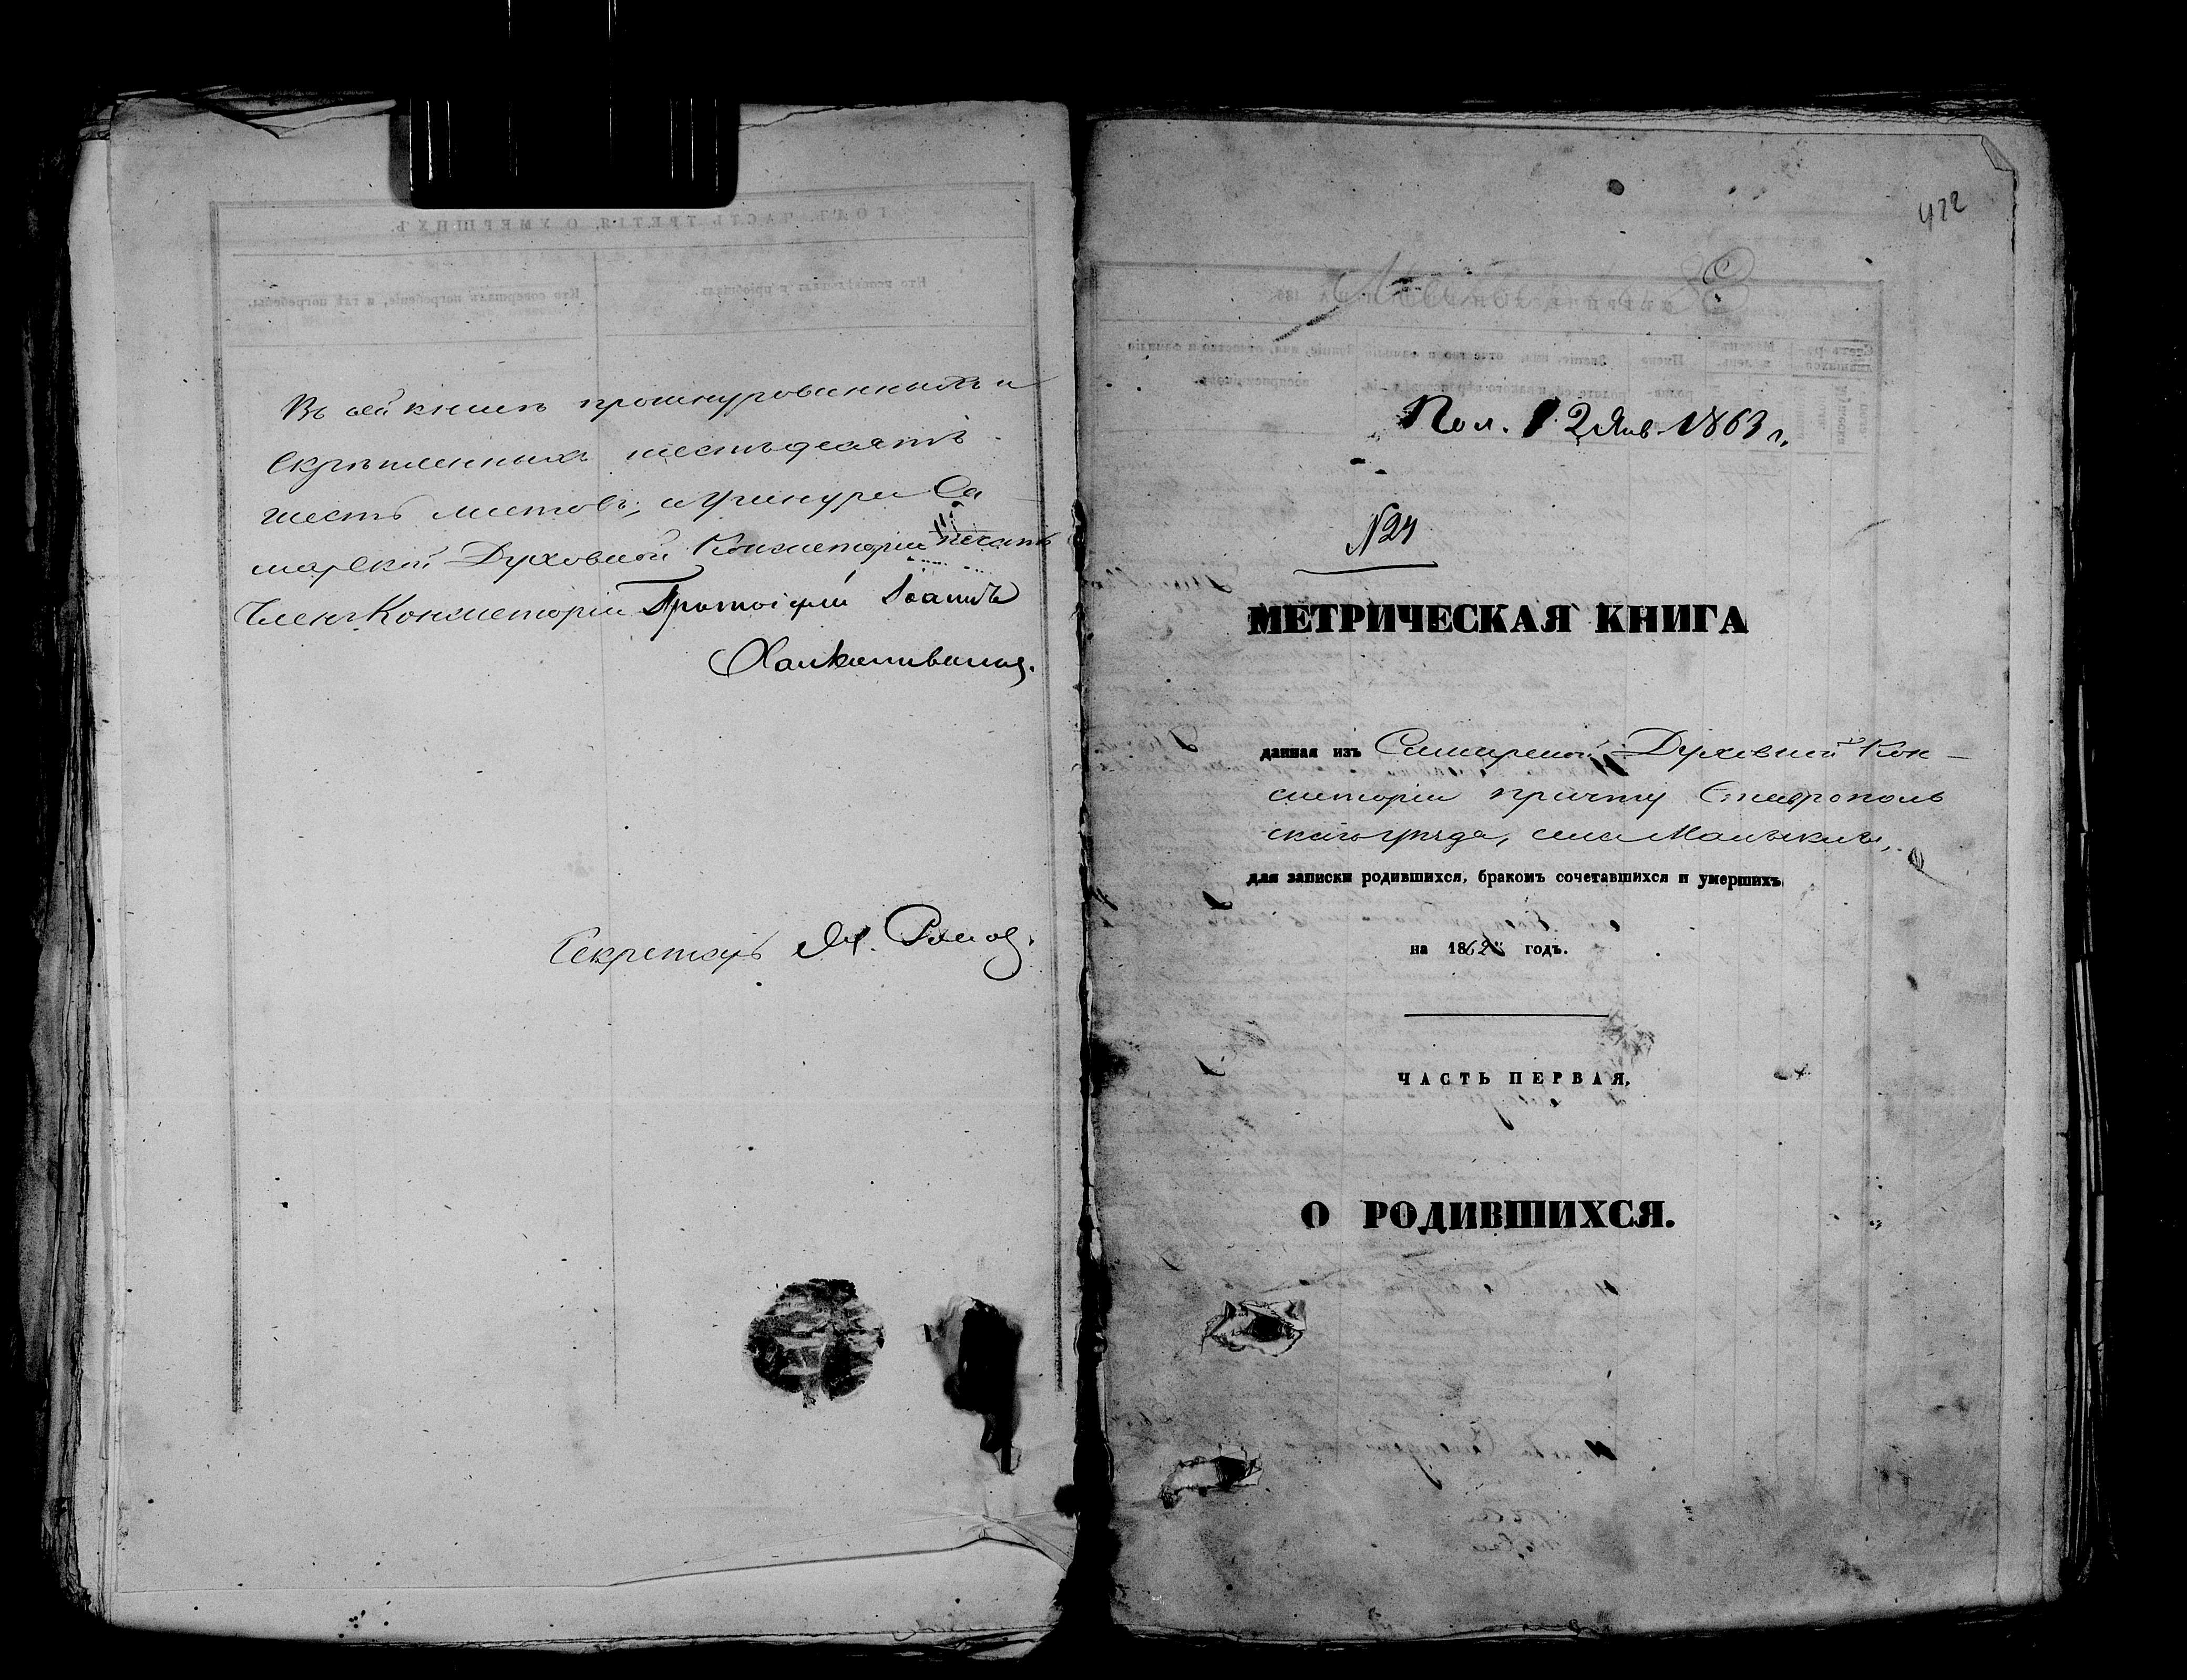 Въ сей книгѣ прошнурованныхъ и
скрѣпленныхъ шестьдесятъ
шесть листовъ; у шнура Са
марской Духовной Консисторіи печать
Членъ Консисторіи Протоіерей Іоаннъ
Секретарь
422
Пол. 12 Янв. 1863 г.
N 24
МЕТРИЧЕСКАЯ КНИГА
данная изъ Самарской Духовной Кон-
систоріи причту Ставрополь
скаго уѣзда, села Малыклы,
для записки родившихся, бракомъ сочетавшихся и умершихъ
на 1862 годъ.
ЧАСТЬ ПЕРВАЯ.
О РОДИВШИХСЯ.